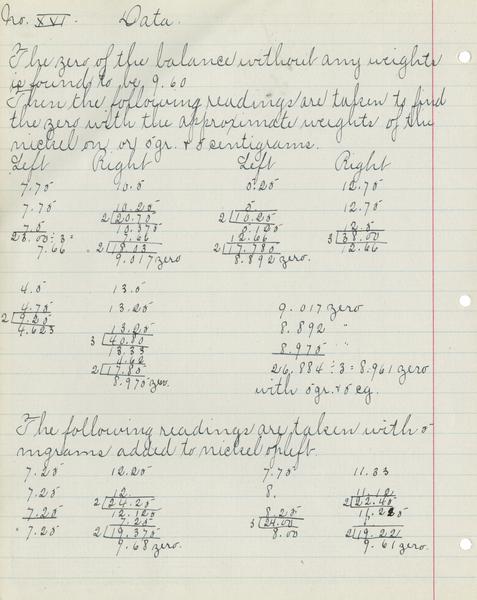 No. XVI. Data.
The zero of the balance without any weights
is found to be 9.60
Then the following readings are taken to find
the zero with the approximate weights of the
nickel on or 5gr. & 5 centigrams.
Left Right Left Right
7.75 10.5 5.25 12.75
7.75 10.25 5. 12.75
7.5 2 20.75 2 10.25 12.5
23.00 ÷ 3 = 10.375 5.125 3 38.00
7.66 7.66 12.66 12.66
2 18.03 2 17.785
9.017 zero 8.892 zero.
4.5 13.5
4.75 13.25 9.017 zero
2 9.25 13.25 8.892 "
4.625 3 40.00 8.975 "
13.33 26.884 ÷ 3 = 8.961 zero
4.62 with 5gr. & 5 cg.
2 17.95
8.975 zero.
The following readings are taken with 5
mgrams added to nickel op left.
7.25 12.25 7.75 11.33
7.25 12. 8. 11.12
7.25 2 24.25 8.25 2 22.45
" 7.25 12.12 3 24.00 11.22
7.25 8.00 8.00
2 19.375 2 19.22
9.68 zero. 9.61 zero.